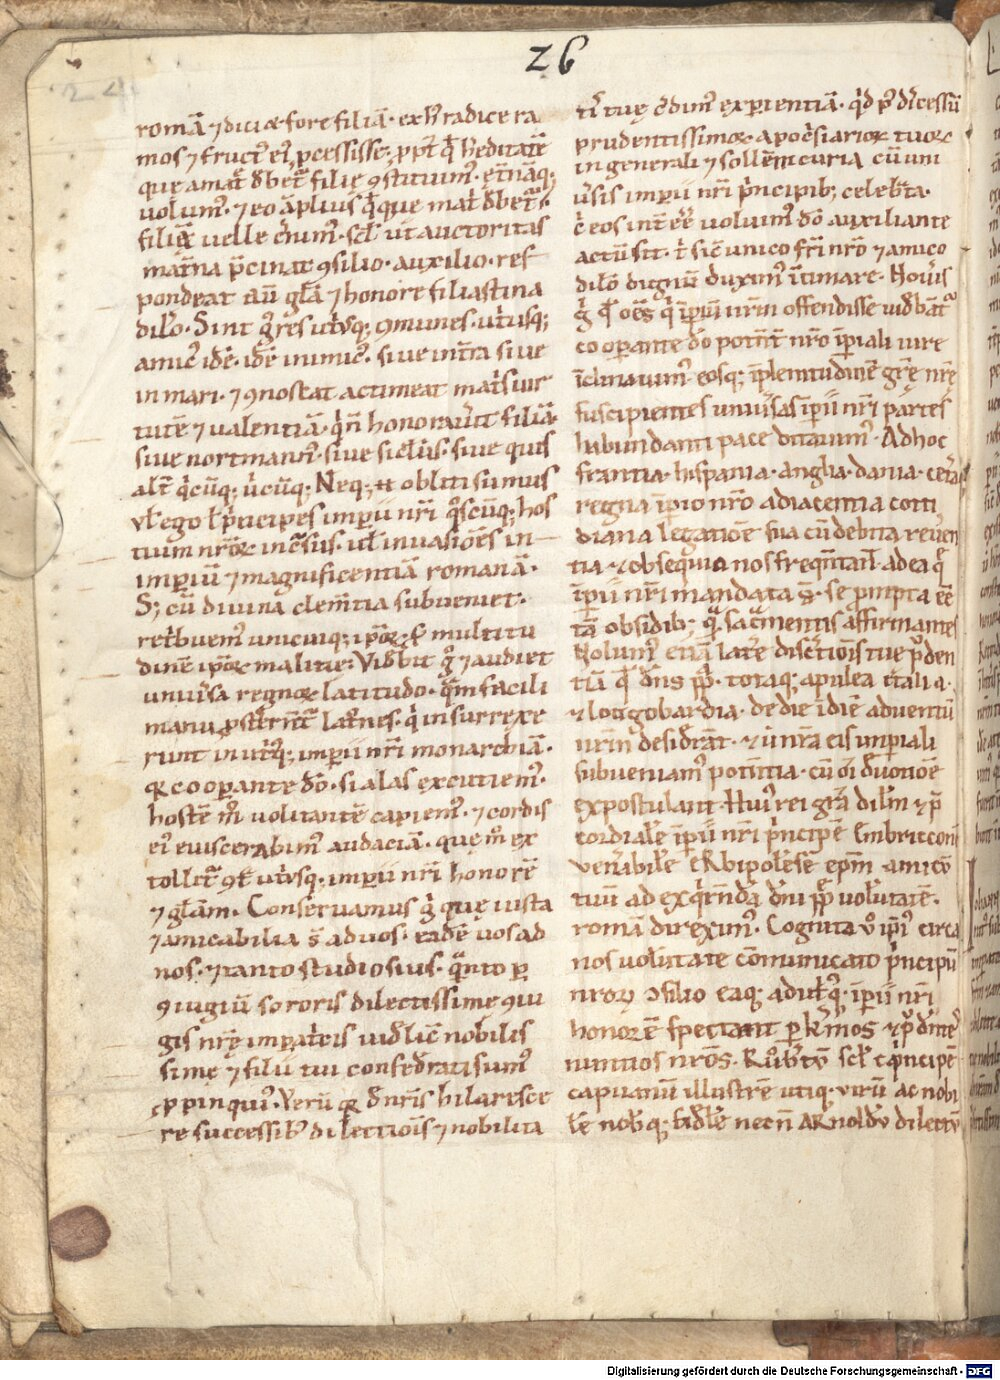 26
24
romā ⁊ dici æ fore filiā · ex h̄ radice ra
mos ⁊ fruct᷒ ei᷒ ꝓcessisse · ꝓpt̄ q̄ hereditatē
que amat̄ debet᷑ filię ꝯstituim᷒ · et̄nāq;
volum᷒ · ⁊ eo āplius q̄ que mat̄ debet᷑
filię uelle
mat̄na p̄cinat ꝯsilio · auxilio · res
pondeat aū gl̄a ⁊ honore filiastina
dil̄o · Sint ḡ res utͥusq; ꝯmunes · utͥusq;
amic᷒ idē · idē inimic᷒ · siue int̄ra siue
in mari · ⁊ ꝯnoscat ac timeat mat̄s uir
tutē ⁊ ualentiā · q̇ n̄ honorau̓it filiā
siue nortmann᷒ · siue sicl̄us · siue quis
alt̄ q̇cūq; u̇cūq; Neq; obliti sumus
vl̄ ego l̄ ṗncipes imp̄ii nr̄i q̊scūq; hos
tium nr̄oꝝ incͥsus · ul̄ inuasiōes in
imp̄iū ⁊ magnificentiā romanā ·
S; cū diuina clem̄tia subueniet ·
ret̓buem᷒ unicuiq; ip̄oꝝ · multitu
dinē ip̄oꝝ malitię · Videbit ḡ ⁊ audiet
uniuersa regnoꝝ latitudo · q̄m facili
manu ꝓst̄nt᷑ lat̄nes · q̇ insurrexe
runt in utͥq; imp̄ii nr̄i monarchiā ·
Q̇ coop̄ante dō · si alas excutiem᷒ ·
hostē m̊ volitantē capiem᷒ · ⁊ cordis
ei᷒ euiscerabim᷒ audaciā · que m̊ ex
tollit᷑ ꝯt̄ utͥusq; imp̄ii nr̄i honorē
⁊ gl̄am · Conseruamus ḡ que iusta
⁊ amicabilia s̄ ad uos · eadē uos ad
nos · ⁊ tanto studiosius · q̄nto p̄
ꝯiugiū sororis dilectissime ꝯiu
gis nr̄ę imp̄at̓cis uidelicȝ nobilis
simę ⁊ filii tui confederati sum᷒
ꝓpinqui᷒ · Verū hilaresce
re successib᷒ dilectiōis ⁊ nobilita
tue experientiā · q̇d p᷒ discessū
prudentissimoꝝ apoc̓siarioꝝ tuoꝝ
in generali ⁊ sollēni curia cū uni
u̓sis imp̄ii nr̄i ṗncipib; celeb̓ta ·
c̄ eos int̄ēē uoluim᷒ dō auxiliante
actū sit · t̄ sic̄ unico fr̄i nr̄o ⁊ amico
dil̄o dignū duxim᷒ ītimare · Nou̓is
ḡ q̄ oēs q̇ īp̄iū nr̄m offendisse uidebāt᷑
coop̄ante dō potn̄t nr̄o īp̄iali iure
īclinauim᷒ · eosq; ī plenitudinē gr̄ę nr̄ę
suscipientes uniu̓sas īp̄ii nr̄i partes
habundanti pace ditauim᷒ · Ad hoc
frantia · hispania · anglia · dania · cet̄a
regna īpio nr̄o adiacentia coti
diana legatiōe sua cū debita reuen
tia ⁊ obsequio nos freqn̄tant · ad ea q̄
īp̄ii nr̄i mandata s̄ · se p̄mpta ēē
tā obsidib; q̄ sac̄mentis affirmantes
Nolum᷒ etiā latēre discͤtiōis tuę p̓den
tiā q̇d dn̄s pp̄ · totaq; apulea italia ·
⁊ longobardia · de die ī diē aduentū
nr̄m desiderāt · ⁊ ut nr̄a eis imperiali
subueniam᷒ potentia · cū oī deuotiōe
expostulant · Hui᷒ rei gr̄a dil̄m ⁊ p̄
cordialē īp̄ii nr̄i ṗncipē Embricconē
venerabilē eRbipolēsē ep̄m · amicū
tuū ad exq̇rendā dn̄i pp̄ uolūtatē ·
romā direxim᷒ · Cognita v̊ ip̄i᷒ circa
nos uolūtate cōmunicato ṗncipū
nroꝝ ꝯsilio eaq; ad utͥq; īp̄ii nr̄i
honorē spectant p̄ kͣmos ⁊ p᷒dentes
nuntios nr̄os · Rub̓tū scl̄ ṗncipē
capuanū illustrē utiq; uirū ac nobi
lē nobisq; fidelē necn̄ ARnoldū dilectū
Digitalisierung gefördert durch die Deutsche Forschungsgemeinschaft - DFG